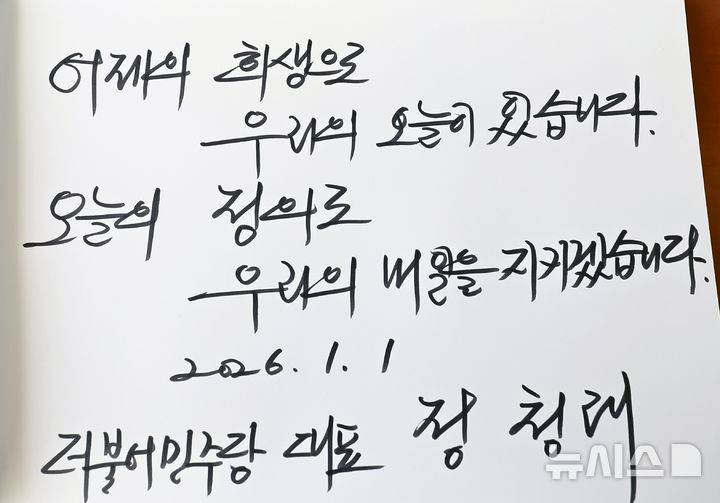 어제의 희생으로
우리의 오늘이 있습니다.
오늘의 정의로
우리의 내일을 지키겠습니다.
2026. 1. 1
더불어민주당 대표 정청래
뉴시스